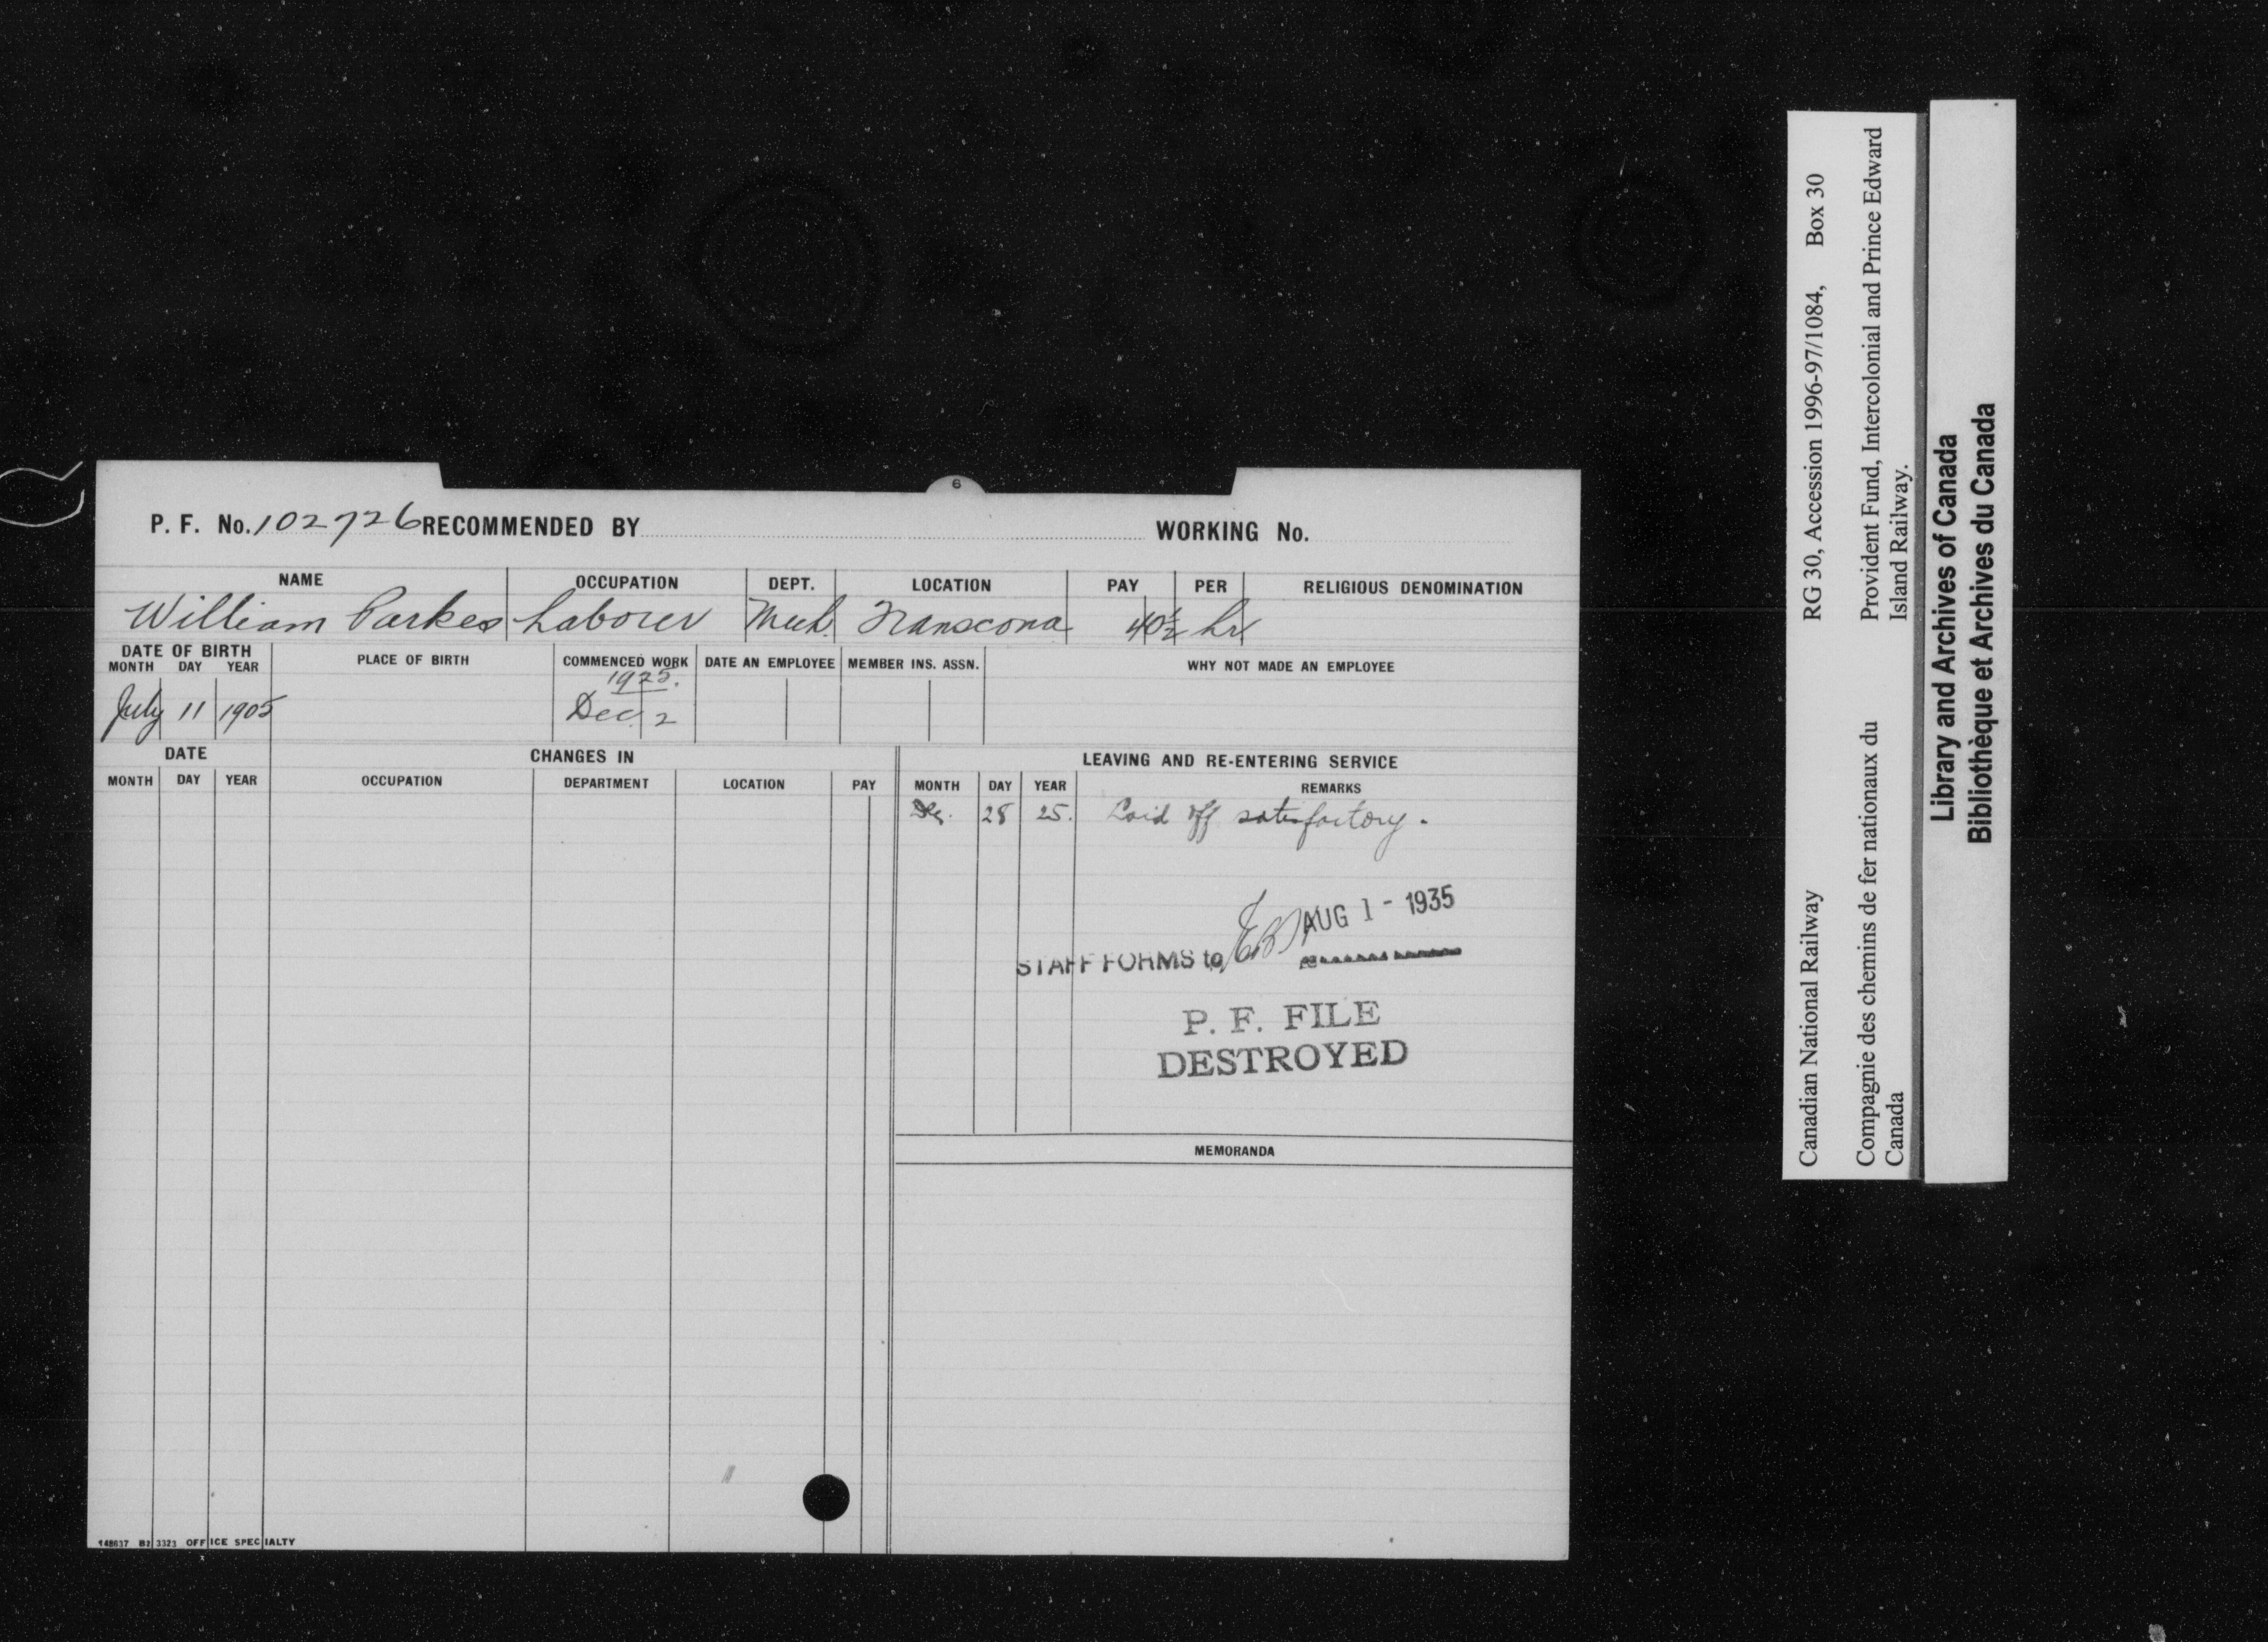 6
P. F. No. 102726 RECOMMENDED BY WORKING No.
NAME OCCUPATION DEPT. LOCATION PAY PER RELIGIOUS DENOMINATION
William Parkes Laborer Mech. Transcona 40½ hr
DATE OF BIRTH PLACE OF BIRTH COMMENCED WORK DATE AN EMPLOYEE MEMBER INS. ASSN. WHY NOT MADE AN EMPLOYEE
MONTH DAY YEAR
1925.
July 11 1905 Dec. 2
DATE CHANGES IN LEAVING AND RE-ENTERING SERVICE
MONTH DAY YEAR OCCUPATION DEPARTMENT LOCATION PAY MONTH DAY YEAR REMARKS
28 25. Laid off satisfactory.
AUG 1 - 1935
STAFF FORMS to
P. F. FILE
DESTROYED
MEMORANDA
148637 B2 3323 OFFICE SPECIALTY
Canadian National Railway RG 30, Accession 1996-97/1084, Box 30
Compagnie des chemins de fer nationaux du Provident Fund, Intercolonial and Prince Edward
Canada Island Railway.
Library and Archives of Canada
Bibliothèque et Archives du Canada